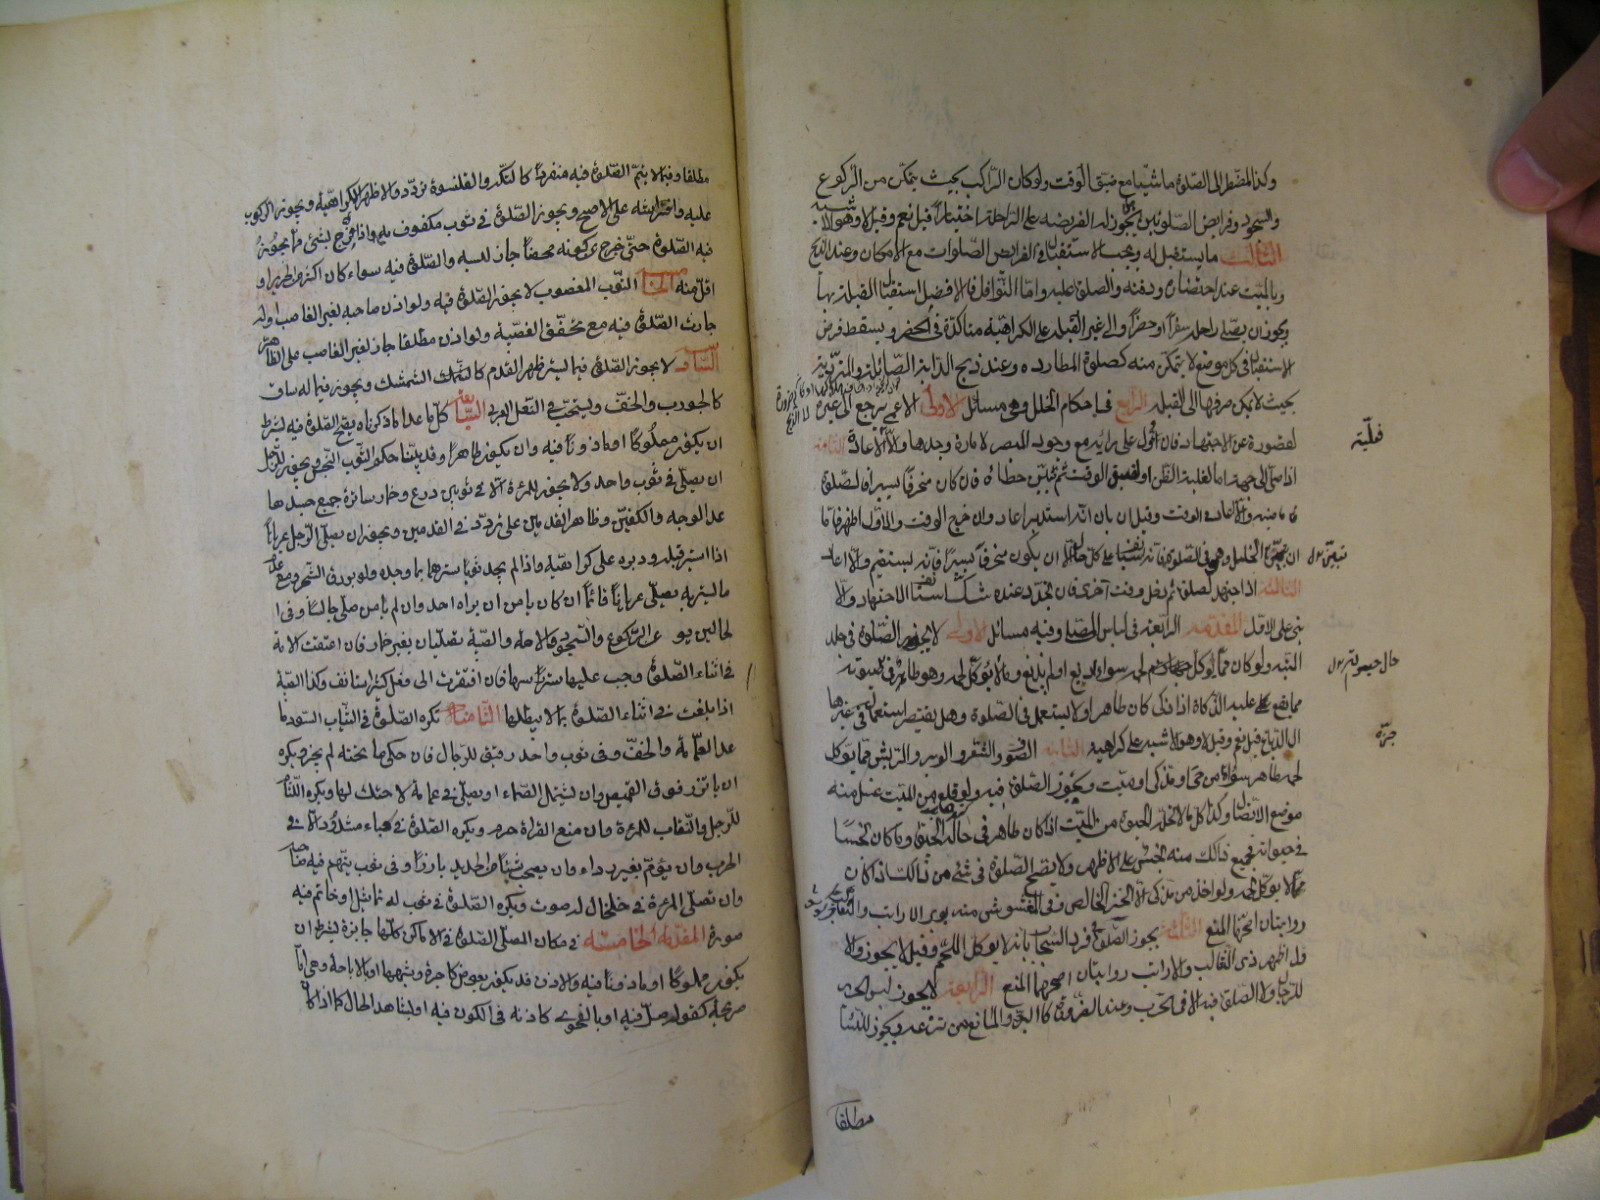 وكذا المضطر الى الصلوة ماشيا مع ضيق الوقت ولو كان الراكب بحيث يتمكن من الركوع
والسجود وفرايض الصلوة هل يجوز له الفريضه على الراحلة اختيارا قيل نعم وقيل لا وهو الاشبه
الثالث ما يستقبل له ويجب الاستقبال في فرايض الصلوات مع الامكان وعند الذبح
وبالميت عند احتضاره ودفنه والصلوة عليه واما النوافل فالافضل استقبال القبلة بها
ويجوز ان يصلى على الراحله سفرا او حضرا والى غير القبله على كراهية متاكدة في الحضر ويسقط فرض
الاستقبال في كل موضع لا يتمكن منه كصلوة المطارده وعند ذبح الدابة الصائلة والمتردية
بحيث لا يمكن صرفها الى القبله الرابع في احكام الخلل وهي مسائل الاولى الاعمى يرجع الى غيره
لقصوره عن الاجتهاد فان عول على رايه مع وجود المبصر لامارة وجدها والا الاعادة الثانية
اذا صلى الى جهة اما لغلبة الظن او لضيق الوقت ثم تبين خطاؤه فان كان منحرفا يسيرا فالصلوة
ماضيه والا اعاد في الوقت وقيل ان بان انه استدبر اعاد وان خرج الوقت والاول اظهر فاما
ان تبين الخلل وهو في الصلوة فانه يستانف على كل حال الا ان يكون منحرفا يسيرا فانه يستقيم ولا اعادة
الثالثة اذا اجتهد لصلوة ثم دخل وقت اخرى فان تجدد عنده شك استانف الاجتهاد والا
بنى على الاول المقدمه الرابعة في لباس المصلي وفيه مسائل الاولى لا يجوز الصلوة في جلد
الميته ولو كان مما يوكل لحمه سواء دبغ او لم يدبغ وما لا يوكل لحمه وهو طاهر في حيوته
مما يقع عليه الذكاة اذا ذكى كان طاهرا ولا يستعمل في الصلوة وهل يفتقر استعماله في غيرها
الى الدباغ قيل نعم وقيل لا وهو الاشبه على كراهيه الثانية الصوف والشعر والوبر والريش مما يوكل
لحمه طاهر سواء جز من حي او مذكى او ميت ويجوز الصلوة فيه ولو قلع من الميت غسل منه
موضع الاتصال وكذا كل ما لا تحله الحيوة من الميت اذا كان طاهرا في حال الحيوة وما كان نجسا
في حيوته فجميع ذلك منه نجس على الاظهر ولا يصح الصلوة في شئ من ذلك اذا كان
مما لا يوكل لحمه ولو اخذ من مذكى الا الخز الخالص وفي المغشوش منه بوبر الارانب والثعالب
روايتان اصحهما المنع الثالثة يجوز الصلوة في فرو السنجاب فانه لا يوكل اللحم وقيل لا يجوز والاول
اظهر وفي الثعالب والارانب روايتان اصحهما المنع الرابعة لا يجوز لبس الحرير
للرجال ولا الصلوة فيه الا في الحرب وعند الضرورة كالبرد المانع من نزعه ويجوز للنساء
قبلته
تبين
جزه
مطلقا
مطلقا وفيما لا يتم الصلوة فيه منفردا كالتكة والقلنسوة تردد والاظهر الكراهية ويجوز الركوب
عليه وافتراشه على الاصح ويجوز الصلوة في ثوب مكفوف به واذا مزج بشئ مما يجوز
فيه الصلوة حتى خرج عن كونه محضا جاز لبسه والصلوة فيه سواء كان اكثر من الحرير او
اقل منه الخامسة الثوب المغصوب لا يجوز الصلوة فيه ولو اذن صاحبه لغير الغاصب او له
جازت الصلوة فيه مع تحقق الغصبية ولو اذن مطلقا جاز لغير الغاصب على الظاهر
السادسة لا يجوز الصلوة فيما يستر ظهر القدم كالشمشك ويجوز فيما له ساق
كالجورب والخف ويستحب في النعل العربي السابعة كل ما عدا ما ذكرناه يصح الصلوة فيه بشرط
ان يكون مملوكا او ماذونا فيه وان يكون طاهرا وقد بينا حكم الثوب النجس ويجوز للرجل
ان يصلى في ثوب واحد ولا يجوز للمراة الا في ثوبين درع وخمار ساترة جميع جسدها
عدا الوجه والكفين وظاهر القدمين على تردد في القدمين ويجوز ان يصلى الرجل عريانا
اذا استر قبله ودبره على كراهية واذا لم يجد ثوبا سترهما بما وجده ولو بورق الشجر ومع عدم
ما يستر به يصلى عريانا قائما ان كان يامن ان يراه احد وان لم يامن صلى جالسا وفي
الحالين يومى عن الركوع والسجود والامة والصبية تصليان بغير خمار فان اعتقت الامة
في اثناء الصلوة وجب عليها ستر راسها فان افتقرت الى فعل كثير استانفت وكذا الصبية
اذا بلغت في اثناء الصلوة بما لا يبطلها الثامنة تكره الصلوة في الثياب السود ما
عدا العمامة والخف وفي ثوب واحد رقيق للرجال فان حكى ما تحته لم يجز ويكره
ان ياتزر فوق القميص وان يشتمل الصماء او يصلى في عمامة لا حنك لها ويكره اللثام
للرجل والنقاب للمرة وان منع القراءة حرم ويكره الصلوة في قباء مشدود الا في
الحرب وان يؤم بغير رداء وان يصحب شيئا من الحديد بارزا وفي ثوب يتهم صاحبه
وان تصلى المرة في خلخال له صوت ويكره الصلوة في ثوب له تماثيل او خاتم فيه
صورة المقدمة الخامسة في مكان المصلى الصلوة في الاماكن كلها جايزة بشرط ان
يكون مملوكا او ماذونا فيه والاذن قد يكون بعوض كالاجرة وشبهها او بالاباحة وهي اما
صريحة كقوله صل فيه او بالفحوى كاذنه في الكون فيه او بشاهد الحال كما اذا كان